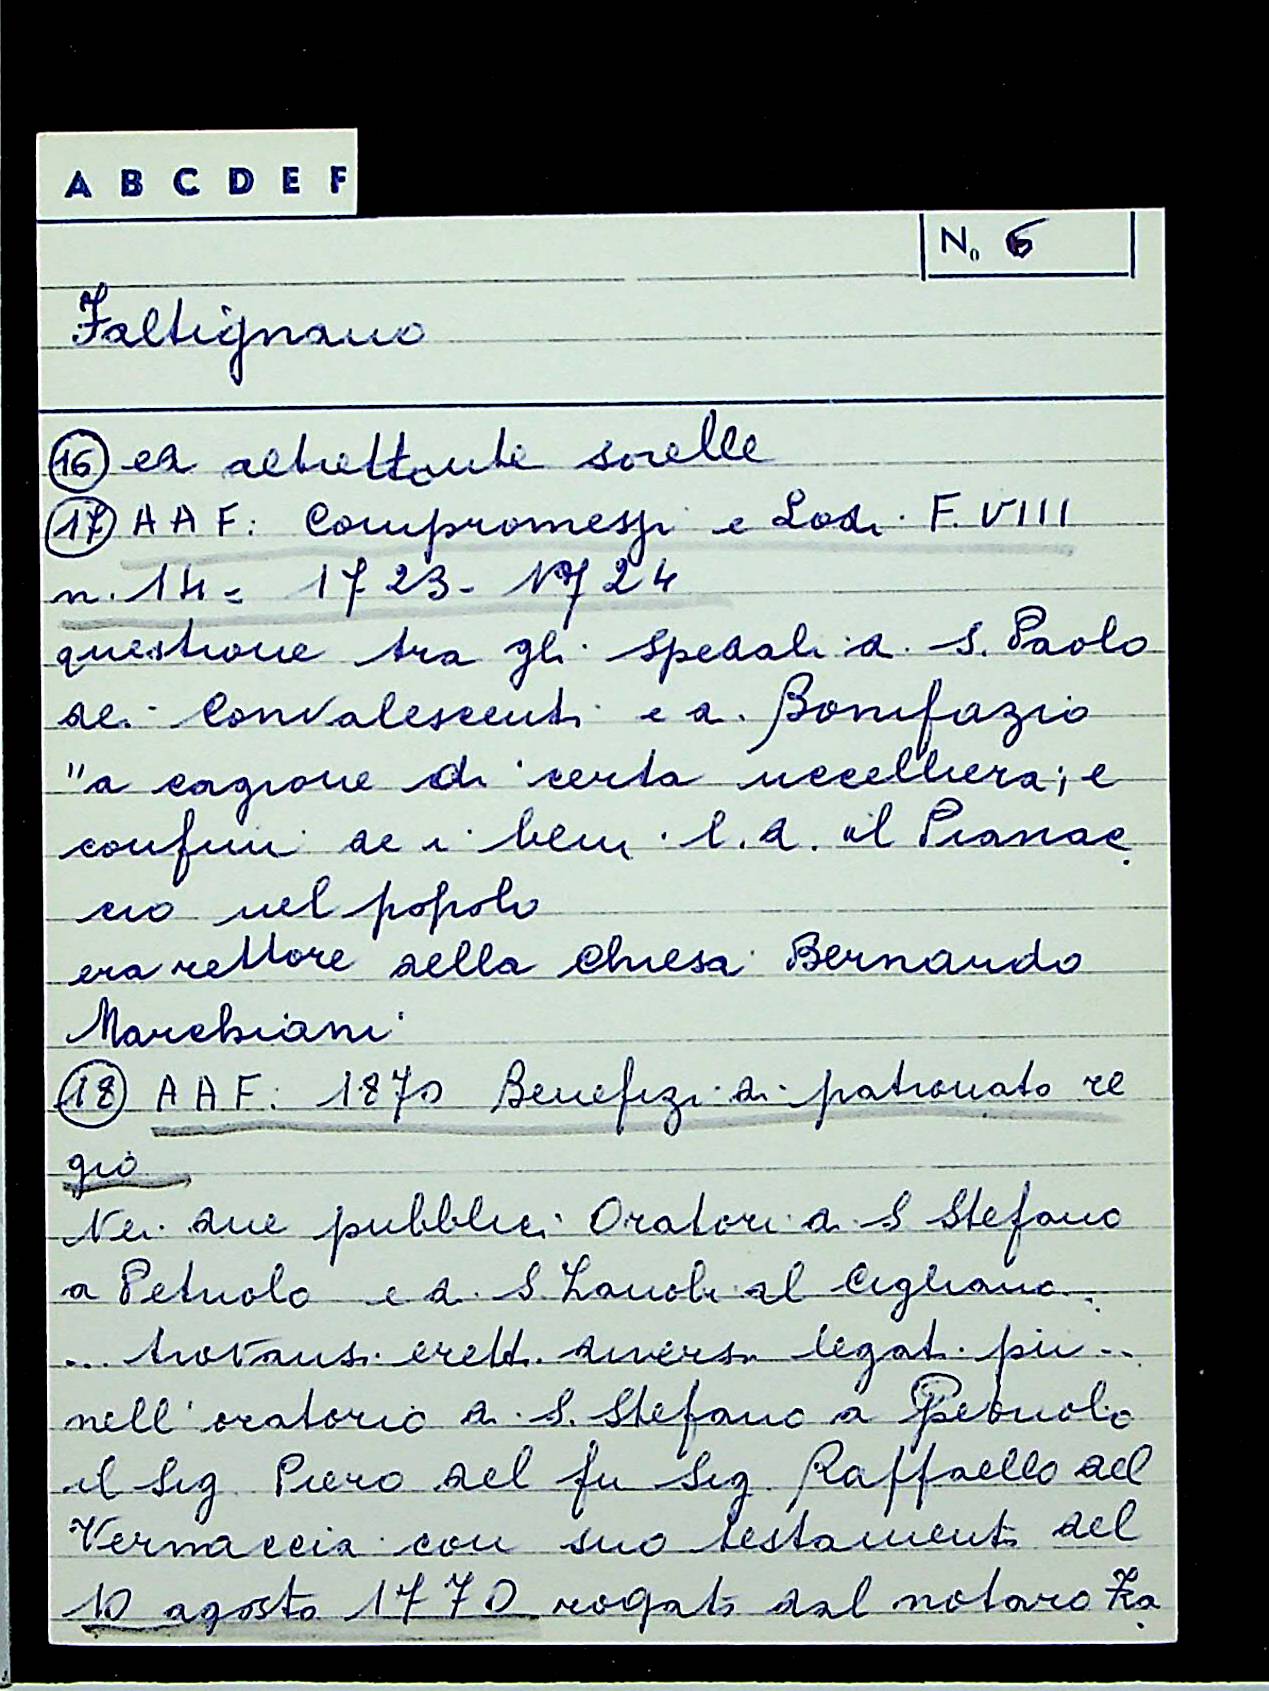 A B C D E F
No 6
Faltignano
16 ed altrettante sorelle
17 AAF: Compromessi e Lodi. F. VIII
n. 14 = 1723-1724
questione tra gli Spedali di S. Paolo
dei Convalescenti e di Bonifazio
"a cagione di certa uccelliera; e
confini dei beni l.d. il Pianac
cio nel popolo
era rettore della Chiesa Bernardo
Marchiani
18 AAF: 1870 Benefizi di patronato re
gio
Nei due pubblici Oratori di S Stefano
a Petriolo e di S. Zanobi al Cigliano..
... trovansi eretti diversi legati pii...
nell'oratorio di S. Stefano a Petriolo
il Sig. Piero del fu Sig. Raffaello del
Vernaccia con suo testamento del
10 agosto 1770 rogato dal notaro Za